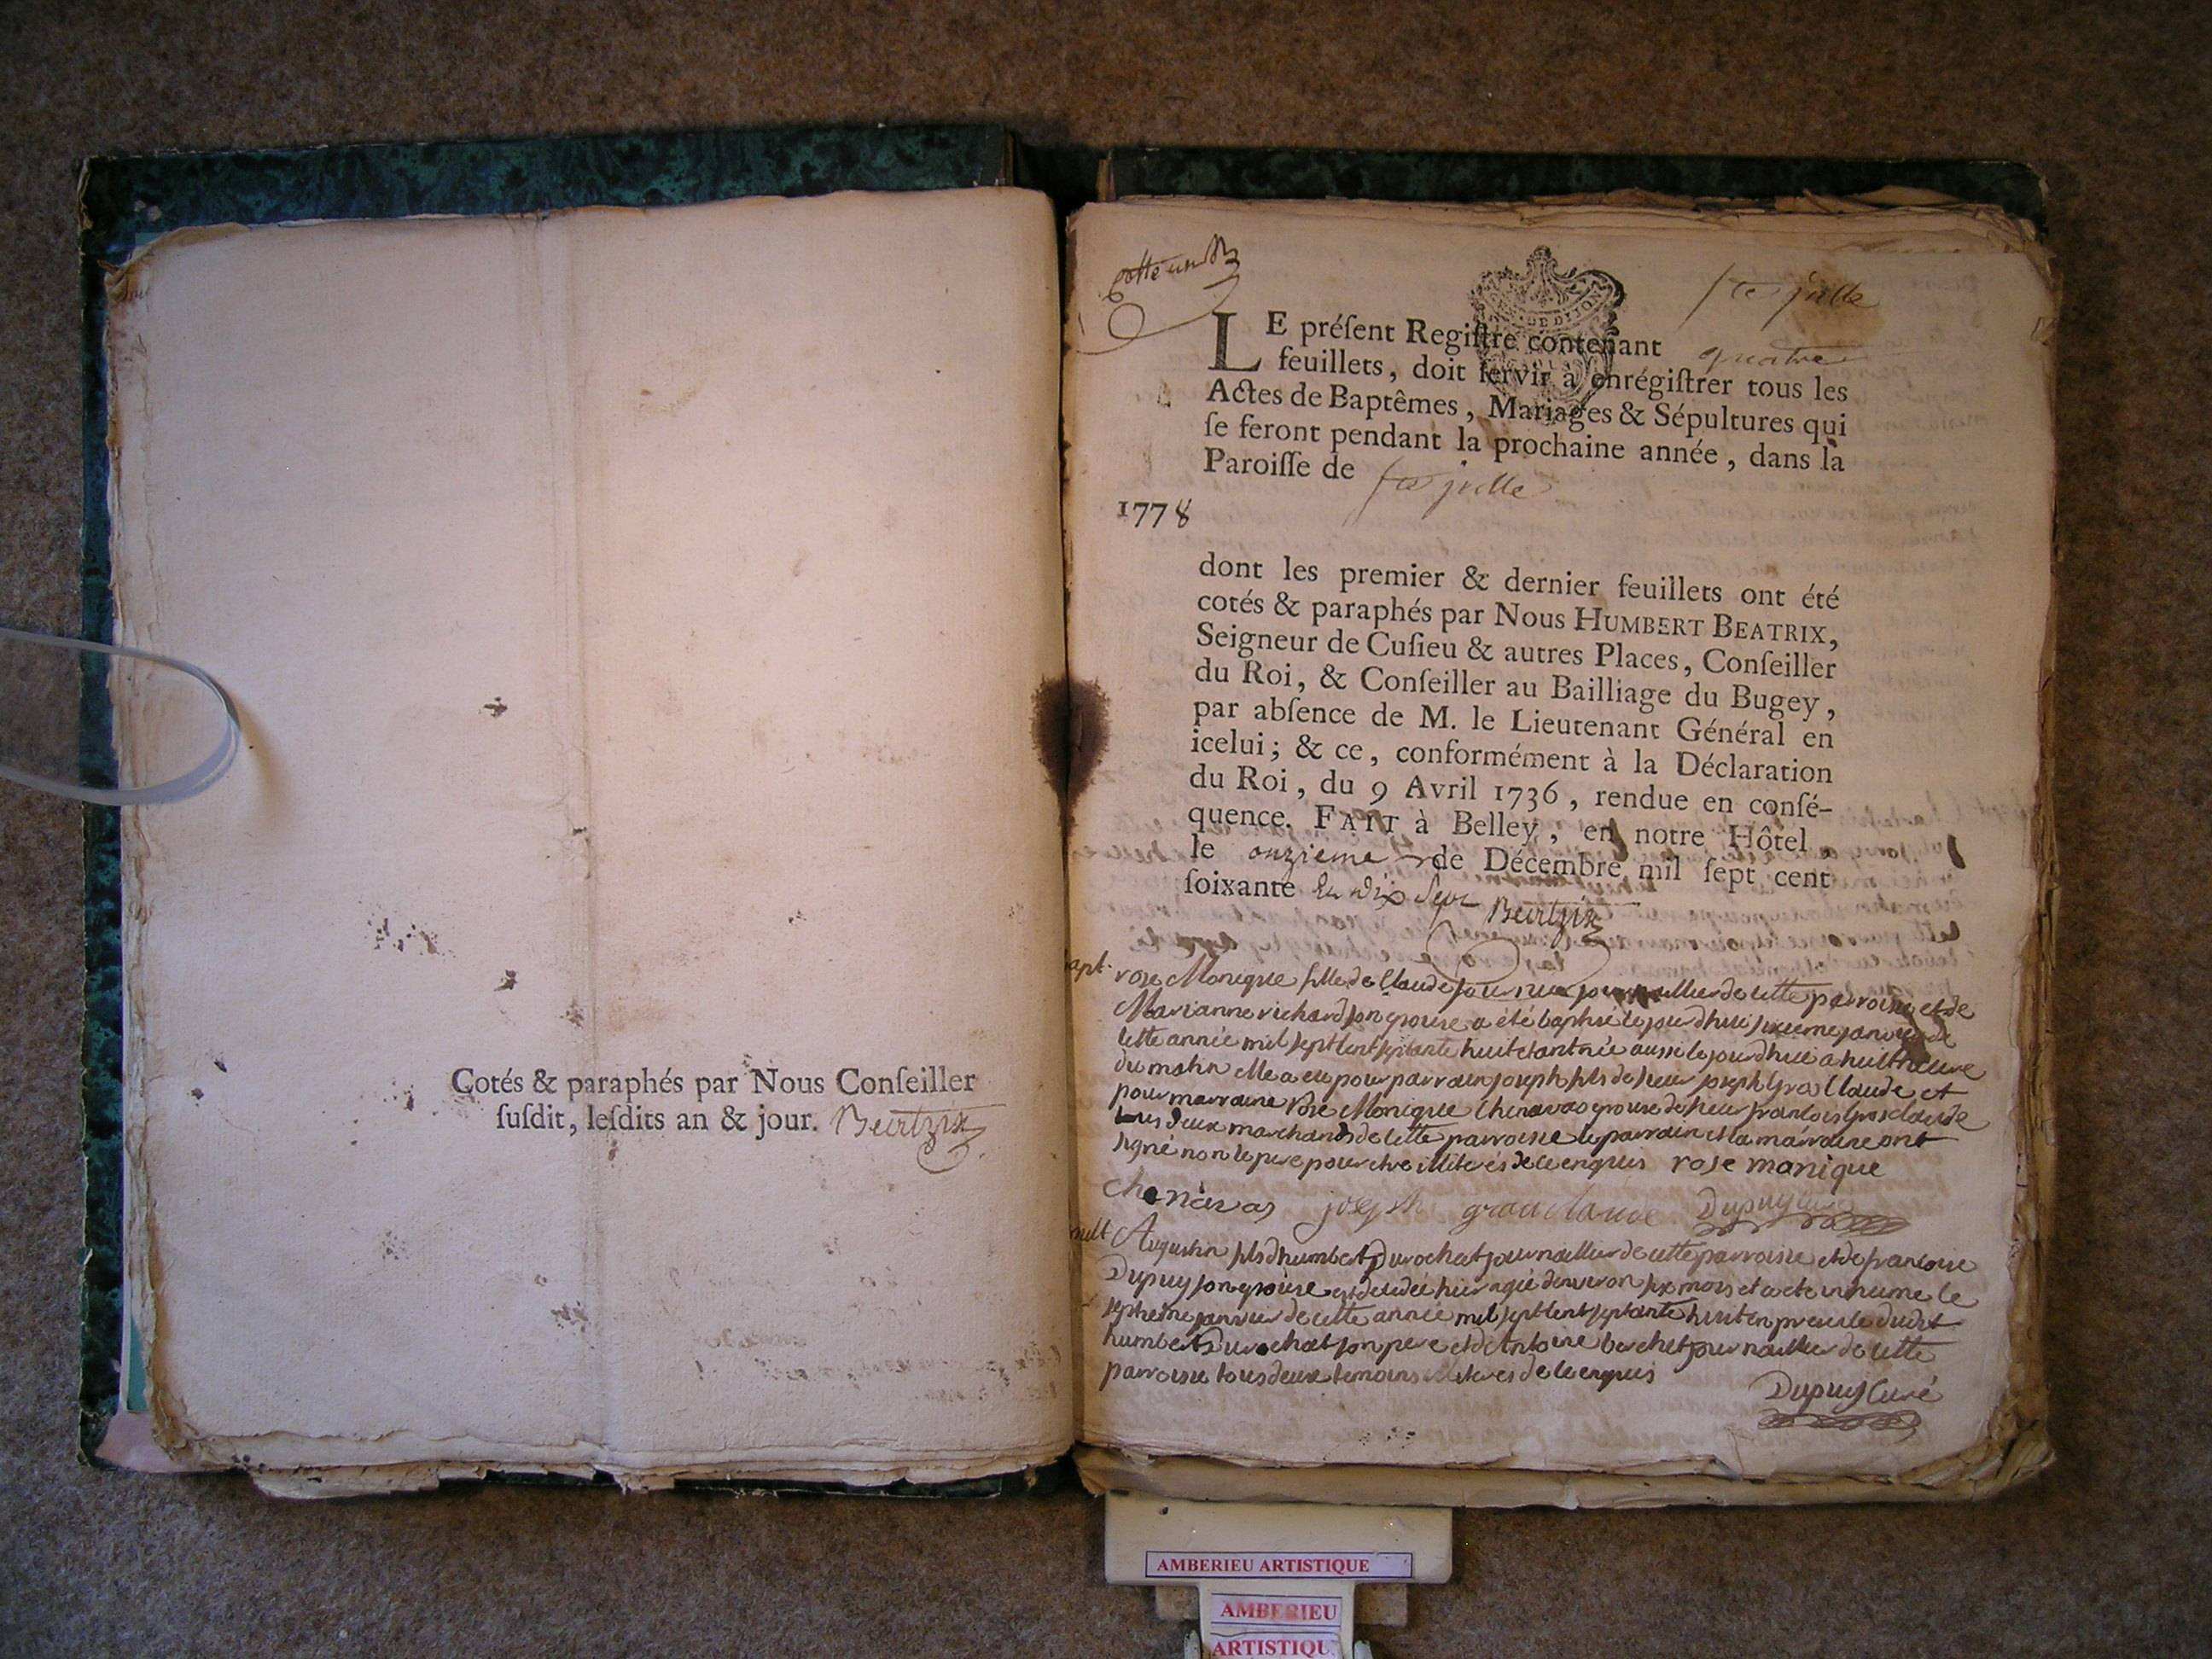 Cotés & paraphés par Nous Conſeiller
ſuſdit, leſdits an & jour. Beatrix
cotte un
ste julle
LE préſent Regiſtre contenant quatre
feuillets, doit ſervir à enrégiſtrer tous les
Actes de Baptêmes, Mariages & Sépultures qui
ſe feront pendant la prochaine année, dans la
Paroiſſe de ste julle
1778
dont les premier & dernier feuillets ont été
cotés & paraphés par Nous HUMBERT BEATRIX,
Seigneur de Cuſieu & autres Places, Conſeiller
du Roi, & Conſeiller au Bailliage du Bugey,
par abſence de M. le Lieutenant Général en
icelui; & ce, conformément à la Déclaration
du Roi, du 9 Avril 1736, rendue en conſé-
quence. FAIT à Belley, en notre Hôtel
le onzieme de Décembre mil ſept cent
ſoixante et dix sept Beatrix
bapt. rose Monique fille de Claude journallier de cette parroisse et de
Marianne richard son epouse a été baptisé le jourdhui sixieme janvier de
cette année mil sept cent septante huit etant née aussi le jourdhui a huit heure
du matin elle a eu pour parrain joseph fils de sieur joseph Gras Claude et
pour marraine rose Monique Chenavas epouse de sieur francois Gras claude
tous deux marchands de cette parroisse le parrain et la marraine ont
signé non le pere pour etre illiterés de ce enquis rose manique
chenavas joseph grasclaude Dupuy Curé
Augustin fils dhumbert Durochat journallier de cette parroisse et de francoise
Dupuy son epouse est decedée hier agé denviron six mois et a ete inhumé le
septieme janvier de cette année mil sept cent septante huit en presence dudit
humbert Durochat son pere et de Antoine berchet journallier de cette
parroisse tous deux temoins illiterés de ce enquis
Dupuy Curé
AMBERIEU ARTISTIQUE
AMBERIEU
ARTISTIQU